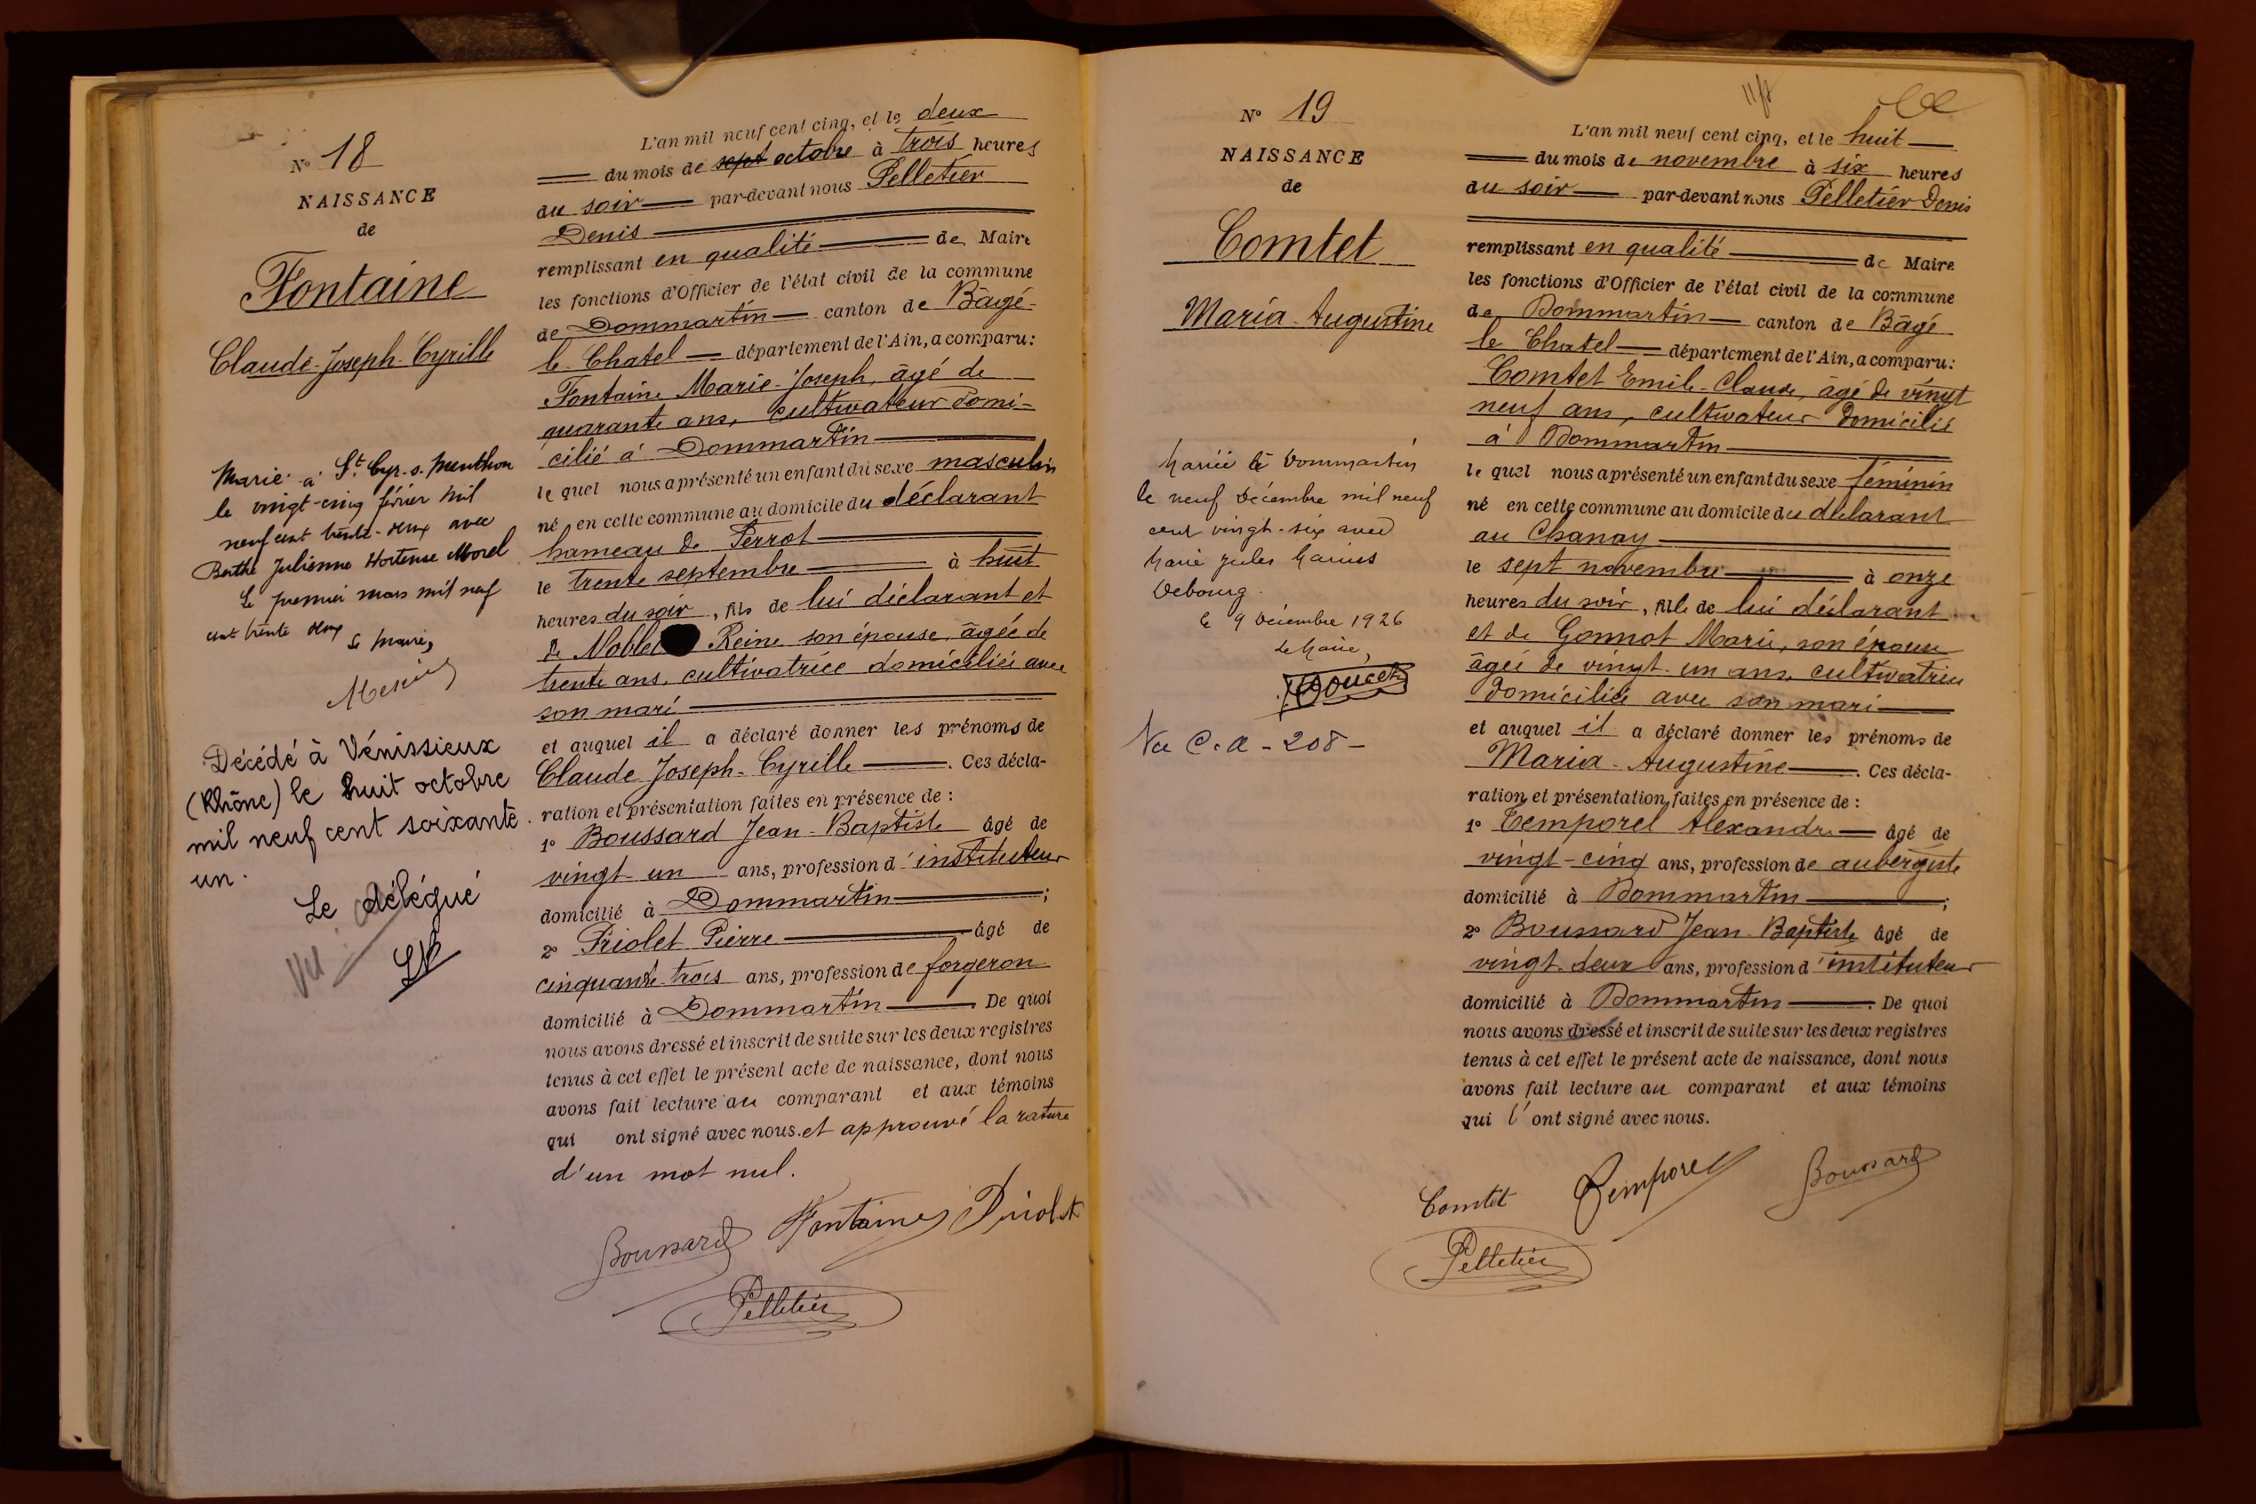 N° 18
NAISSANCE
de
Fontaine
Claude-Joseph-Cyrille
Marié à St Cyr-s-Menthon
le vingt-cinq février mil
neuf cent trente-deux avec
Berthe Julienne Hortense Morel
Le premier mars mil neuf
cent trente deux
Le Maire,
Décédé à Vénissieux
(Rhône) le huit octobre
mil neuf cent soixante
un.
Le délégué
Vu
L'an mil neuf cent cinq, et le deux
du mois de sept octobre à trois heures
du soir par-devant nous Pelletier
Denis
remplissant en qualité de Maire
les fonctions d'Officier de l'état civil de la commune
de Dommartin canton de Bâgé-
le-Chatel département de l'Ain, a comparu:
Fontaine Marie-Joseph, âgé de
quarante ans, cultivateur domi-
cilié à Dommartin
lequel nous a présenté un enfant du sexe masculin
né en cette commune au domicile du déclarant
hameau de Perrot
le trente septembre à huit
heures du soir, fils de lui déclarant et
de Noblet Reine son épouse, âgée de
trente ans, cultivatrice domiciliée avec
son mari
et auquel il a déclaré donner les prénoms de
Claude Joseph-Cyrille. Ces décla-
ration et présentation faites en présence de :
1° Boussard Jean-Baptiste âgé de
vingt-un ans, profession d'instituteur
domicilié à Dommartin;
2° Priolet Pierre âgé de
cinquante-trois ans, profession de forgeron
domicilié à Dommartin. De quoi
nous avons dressé et inscrit de suite sur les deux registres
tenus à cet effet le présent acte de naissance, dont nous
avons fait lecture au comparant et aux témoins
qui ont signé avec nous. et approuvé la rature
d'un mot nul.
Boussard Fontaine Priolet
Pelletier
N° 19
NAISSANCE
de
Comtet
Maria-Augustine
Mariée à Dommartin
le neuf Décembre mil neuf
cent vingt-six avec
Marie Jules Marius
Debourg.
Le 9 Décembre 1926
Le Maire,
Doucet
Vu C.A - 208 -
L'an mil neuf cent cinq, et le huit
du mois de novembre à six heures
du soir par-devant nous Pelletier Denis
remplissant en qualité de Maire
les fonctions d'Officier de l'état civil de la commune
de Dommartin canton de Bâgé
le Chatel département de l'Ain, a comparu:
Comtet Emile-Claude, âgé de vingt
neuf ans, cultivateur domicilié
à Dommartin
lequel nous a présenté un enfant du sexe féminin
né en cette commune au domicile du déclarant
au Chanay
le sept novembre à onze
heures du soir, fille de lui déclarant
et de Gonnot Marie, son épouse
âgée de vingt-un ans, cultivatrice
domiciliée avec son mari
et auquel il a déclaré donner les prénoms de
Maria-Augustine. Ces décla-
ration et présentation faites en présence de :
1° Temporel Alexandre âgé de
vingt-cinq ans, profession de aubergiste
domicilié à Dommartin;
2° Boussard Jean-Baptiste âgé de
vingt-deux ans, profession d'instituteur
domicilié à Dommartin. De quoi
nous avons dressé et inscrit de suite sur les deux registres
tenus à cet effet le présent acte de naissance, dont nous
avons fait lecture au comparant et aux témoins
qui l'ont signé avec nous.
Comtet Temporel Boussard
Pelletier